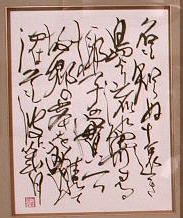 名も知らぬ遠き
島より流れ寄る
椰子の實一つ
故郷の岸を離れて
汝はそも波に幾月